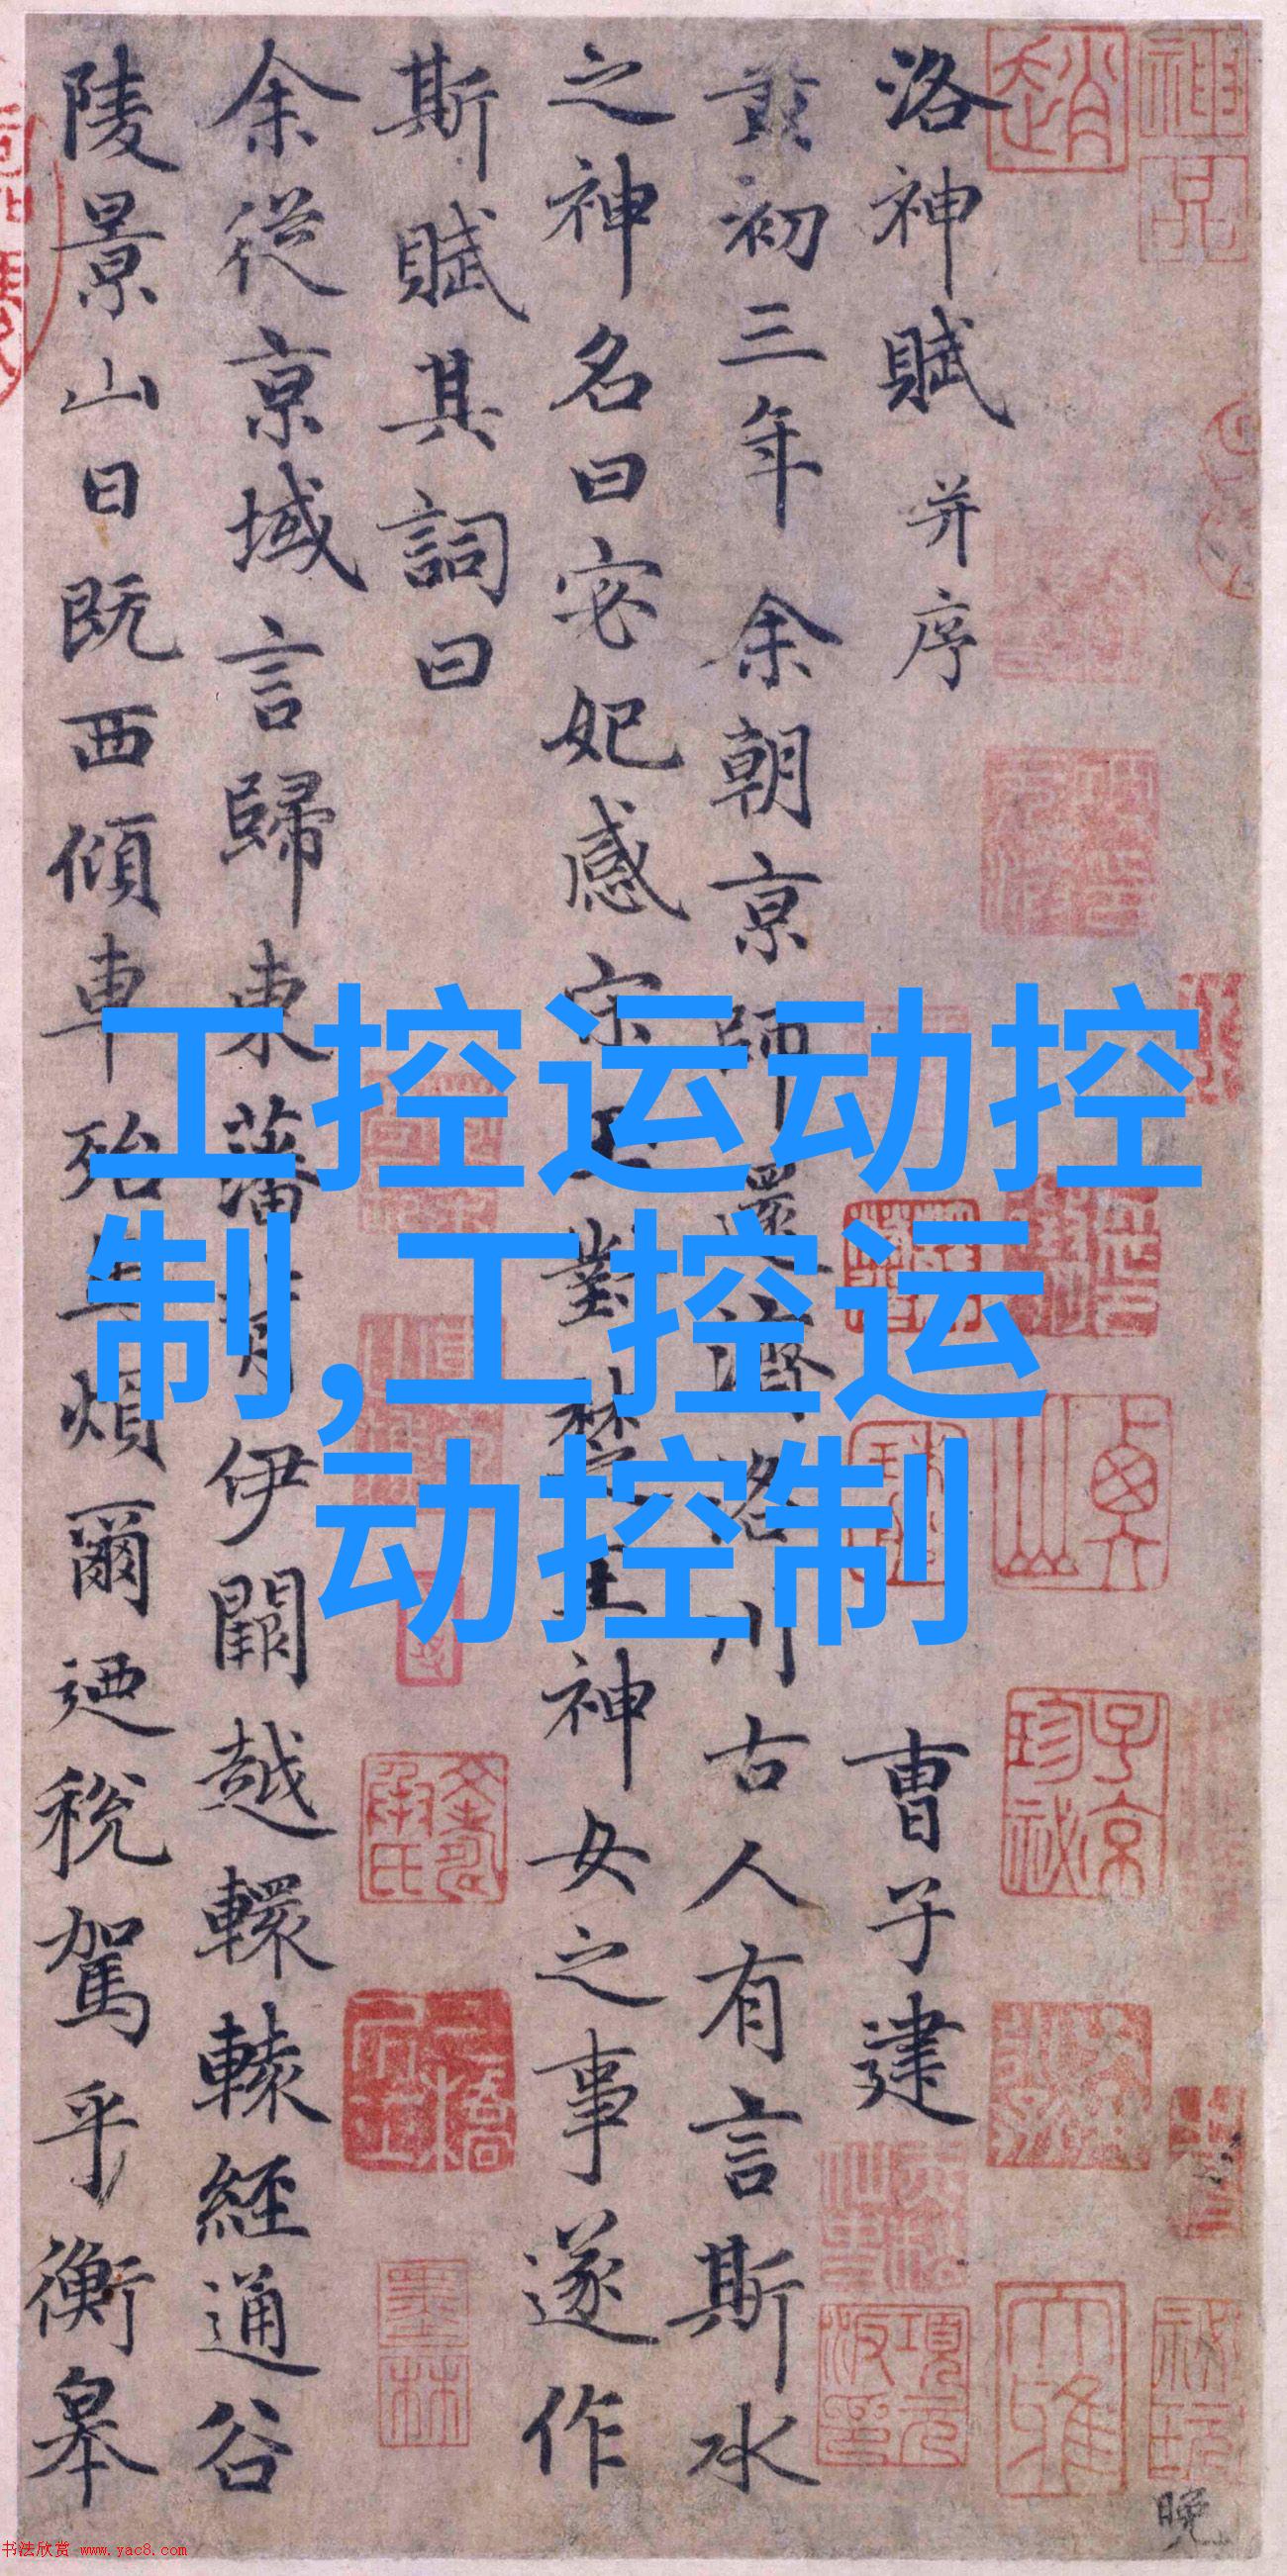 工控运动控
制,工控运
动控制
洛神賦 并序 曹子建
黃初三年余朝京師還濟洛川古人有言斯水
之神名曰宓妃感宋玉對楚王神女之事遂作
斯賦其詞曰
余從京域言歸東藩背伊闕越轘轅經通谷
陵景山日既西傾車殆馬煩爾迺稅駕乎衡皋
神品
趙
大雅
子京珍祕
項元汴印
墨林
晚
书法欣赏 www.yac8.com